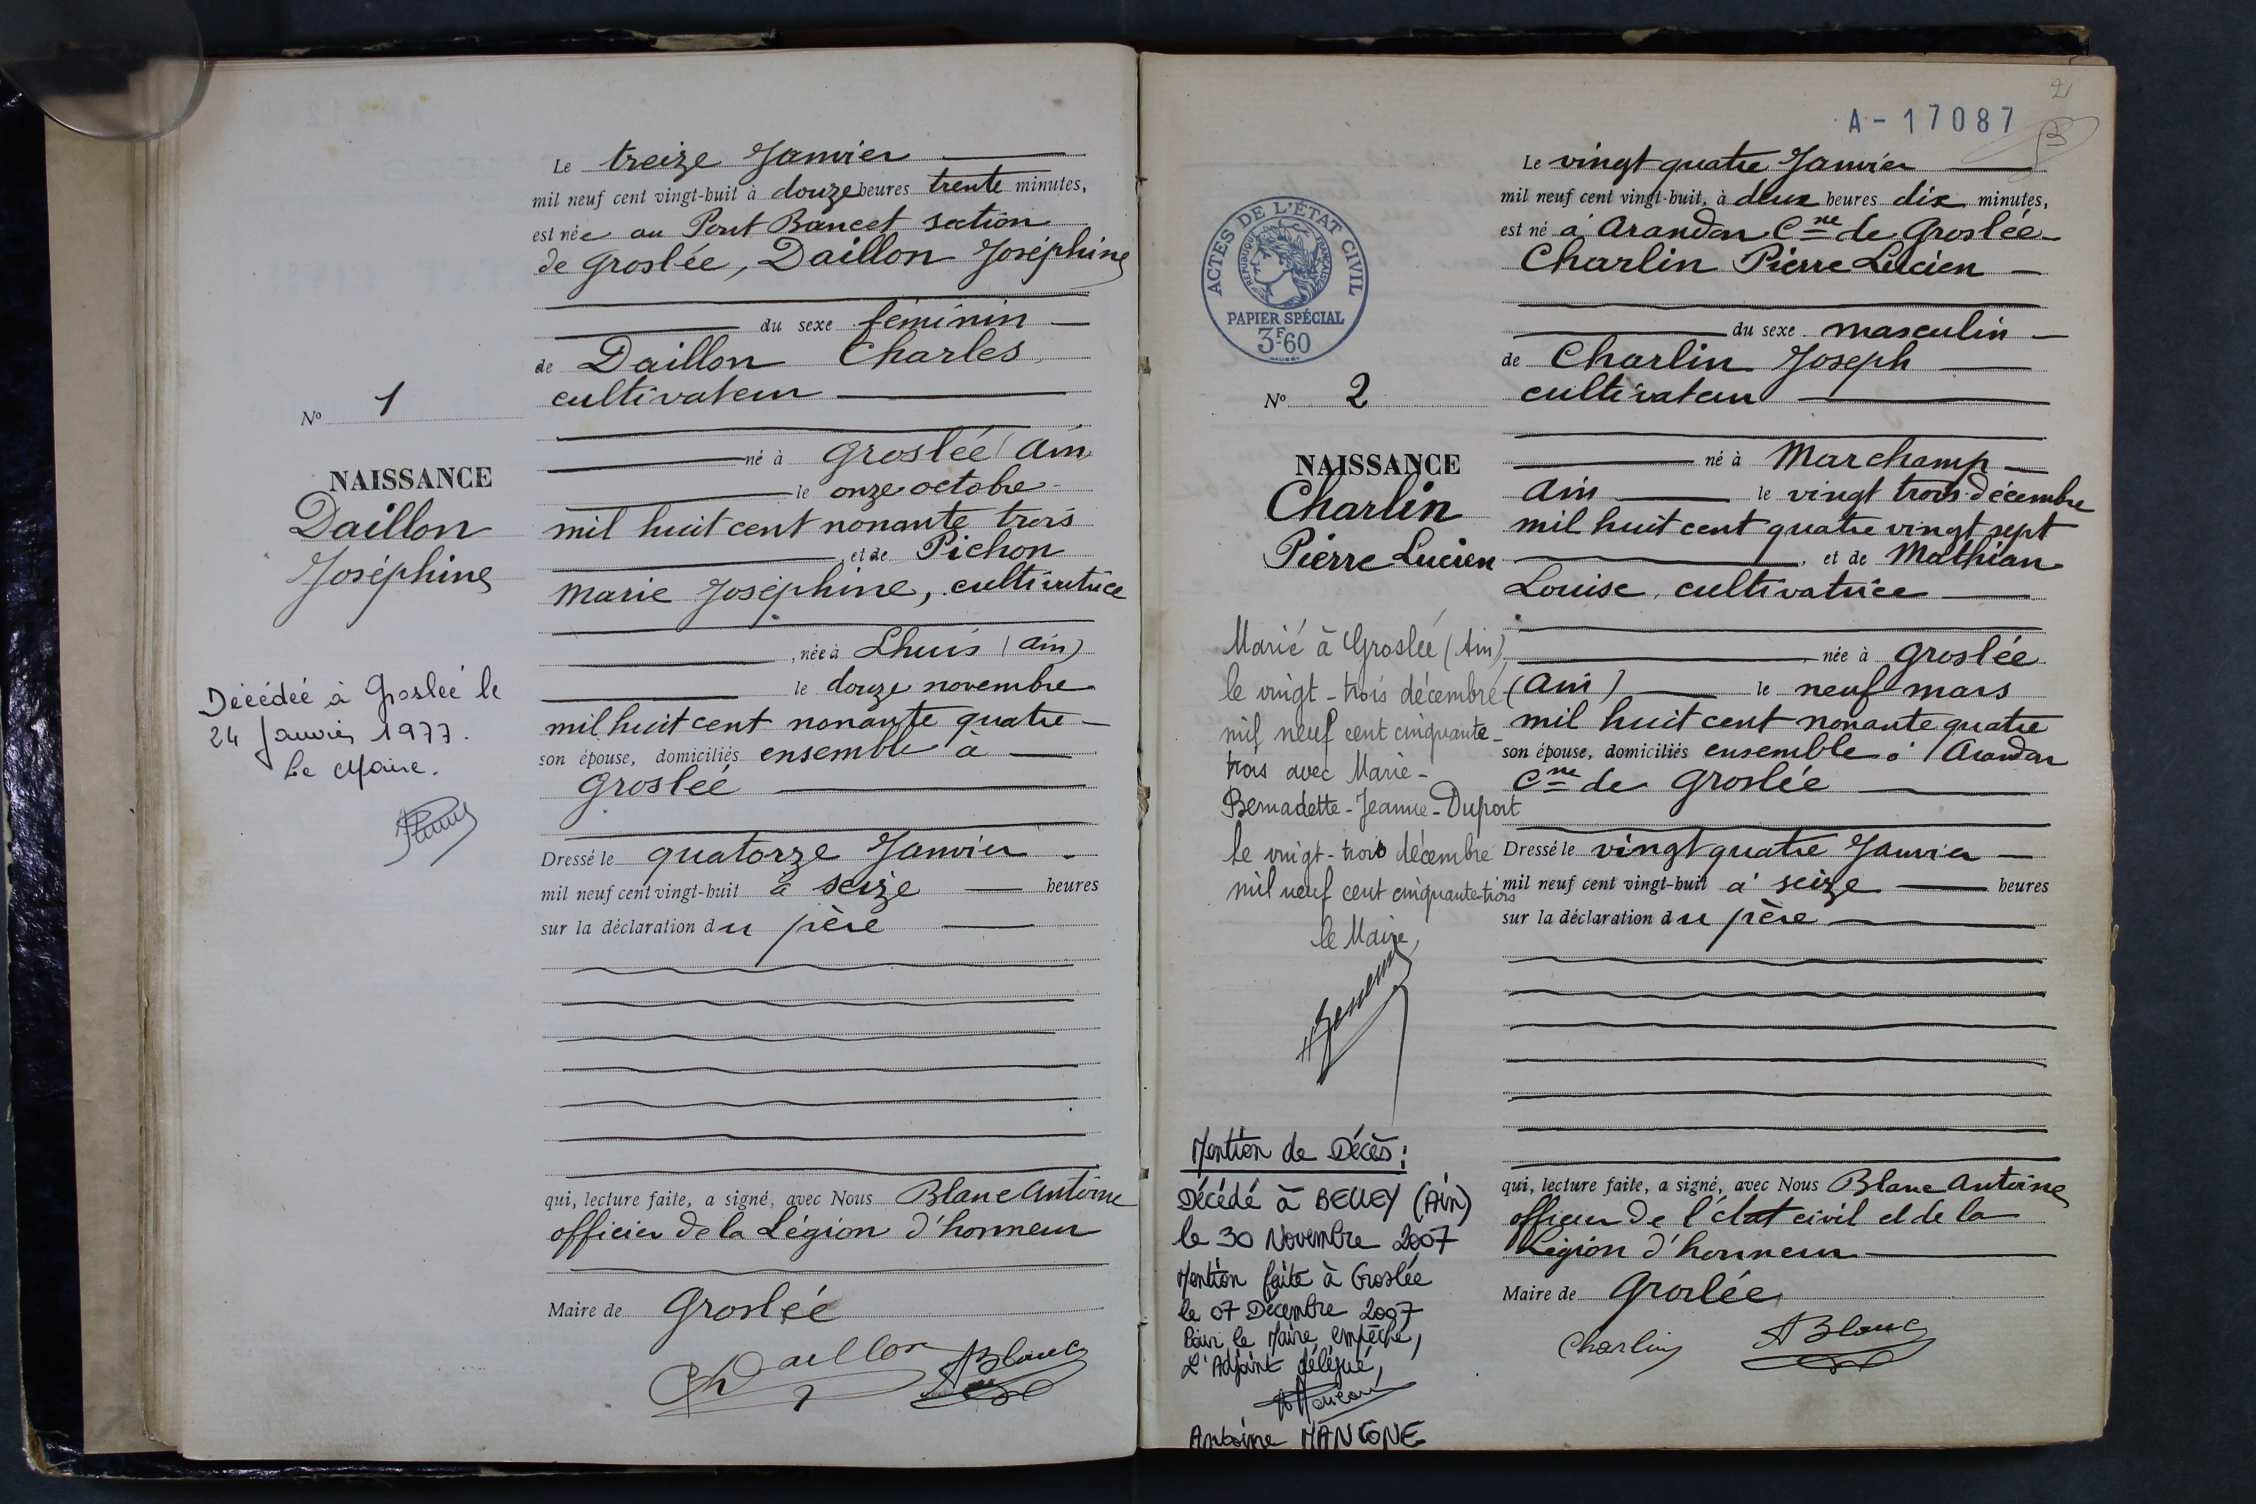 Le treize Janvier
mil neuf cent vingt-huit à douze heures trente minutes,
est née au Port Bancet section
de Groslée, Daillon Joséphine
du sexe féminin
de Daillon Charles
cultivateur
né à Groslée (Ain
le onze octobre
mil huit cent nonante trois
et de Pichon
Marie Joséphine, cultivatrice
, née à Lhuis (Ain)
le douze novembre
mil huit cent nonante quatre
son épouse, domiciliés ensemble à
Groslée
Dressé le quatorze Janvier
mil neuf cent vingt-huit à seize heures
sur la déclaration du père
qui, lecture faite, a signé, avec Nous Blanc Antoine
officier de la Légion d'honneur
Maire de Groslée
Ch Daillon ABlanc
No 1
NAISSANCE
Daillon
Joséphine
Décédée à Groslée le
24 Janvier 1977.
Le Maire.
2
A-17087
Le vingt quatre Janvier
mil neuf cent vingt-huit, à deux heures dix minutes,
est né à Arandon Cne de Groslée
Charlin Pierre Lucien
du sexe masculin
de Charlin Joseph
cultivateur
né à Marchamp
Ain le vingt trois décembre
mil huit cent quatre vingt sept
, et de Mathian
Louise, cultivatrice
née à Groslée
(Ain) le neuf mars
mil huit cent nonante quatre
son épouse, domiciliés ensemble à Arandon
Cne de Groslée
Dressé le vingt quatre Janvier
mil neuf cent vingt-huit à seize heures
sur la déclaration du père
qui, lecture faite, a signé, avec Nous Blanc Antoine
officier de l'état civil et de la
Légion d'honneur
Maire de Groslée
Charlin ABlanc
ACTES DE L'ÉTAT CIVIL
RÉPUBLIQUE FRANÇAISE
PAPIER SPÉCIAL
3F60
No 2
NAISSANCE
Charlin
Pierre Lucien
Marié à Groslée (Ain),
le vingt-trois décembre
mil neuf cent cinquante-
trois avec Marie-
Bernadette-Jeanne-Duport
le vingt-trois décembre
mil neuf cent cinquante-trois
le Maire,
Mention de Décès :
Décédé à BELLEY (Ain)
le 30 Novembre 2007
Mention faite à Groslée
le 07 Décembre 2007
Pour le Maire empêché,
L'Adjoint délégué,
Antoine MANCONE